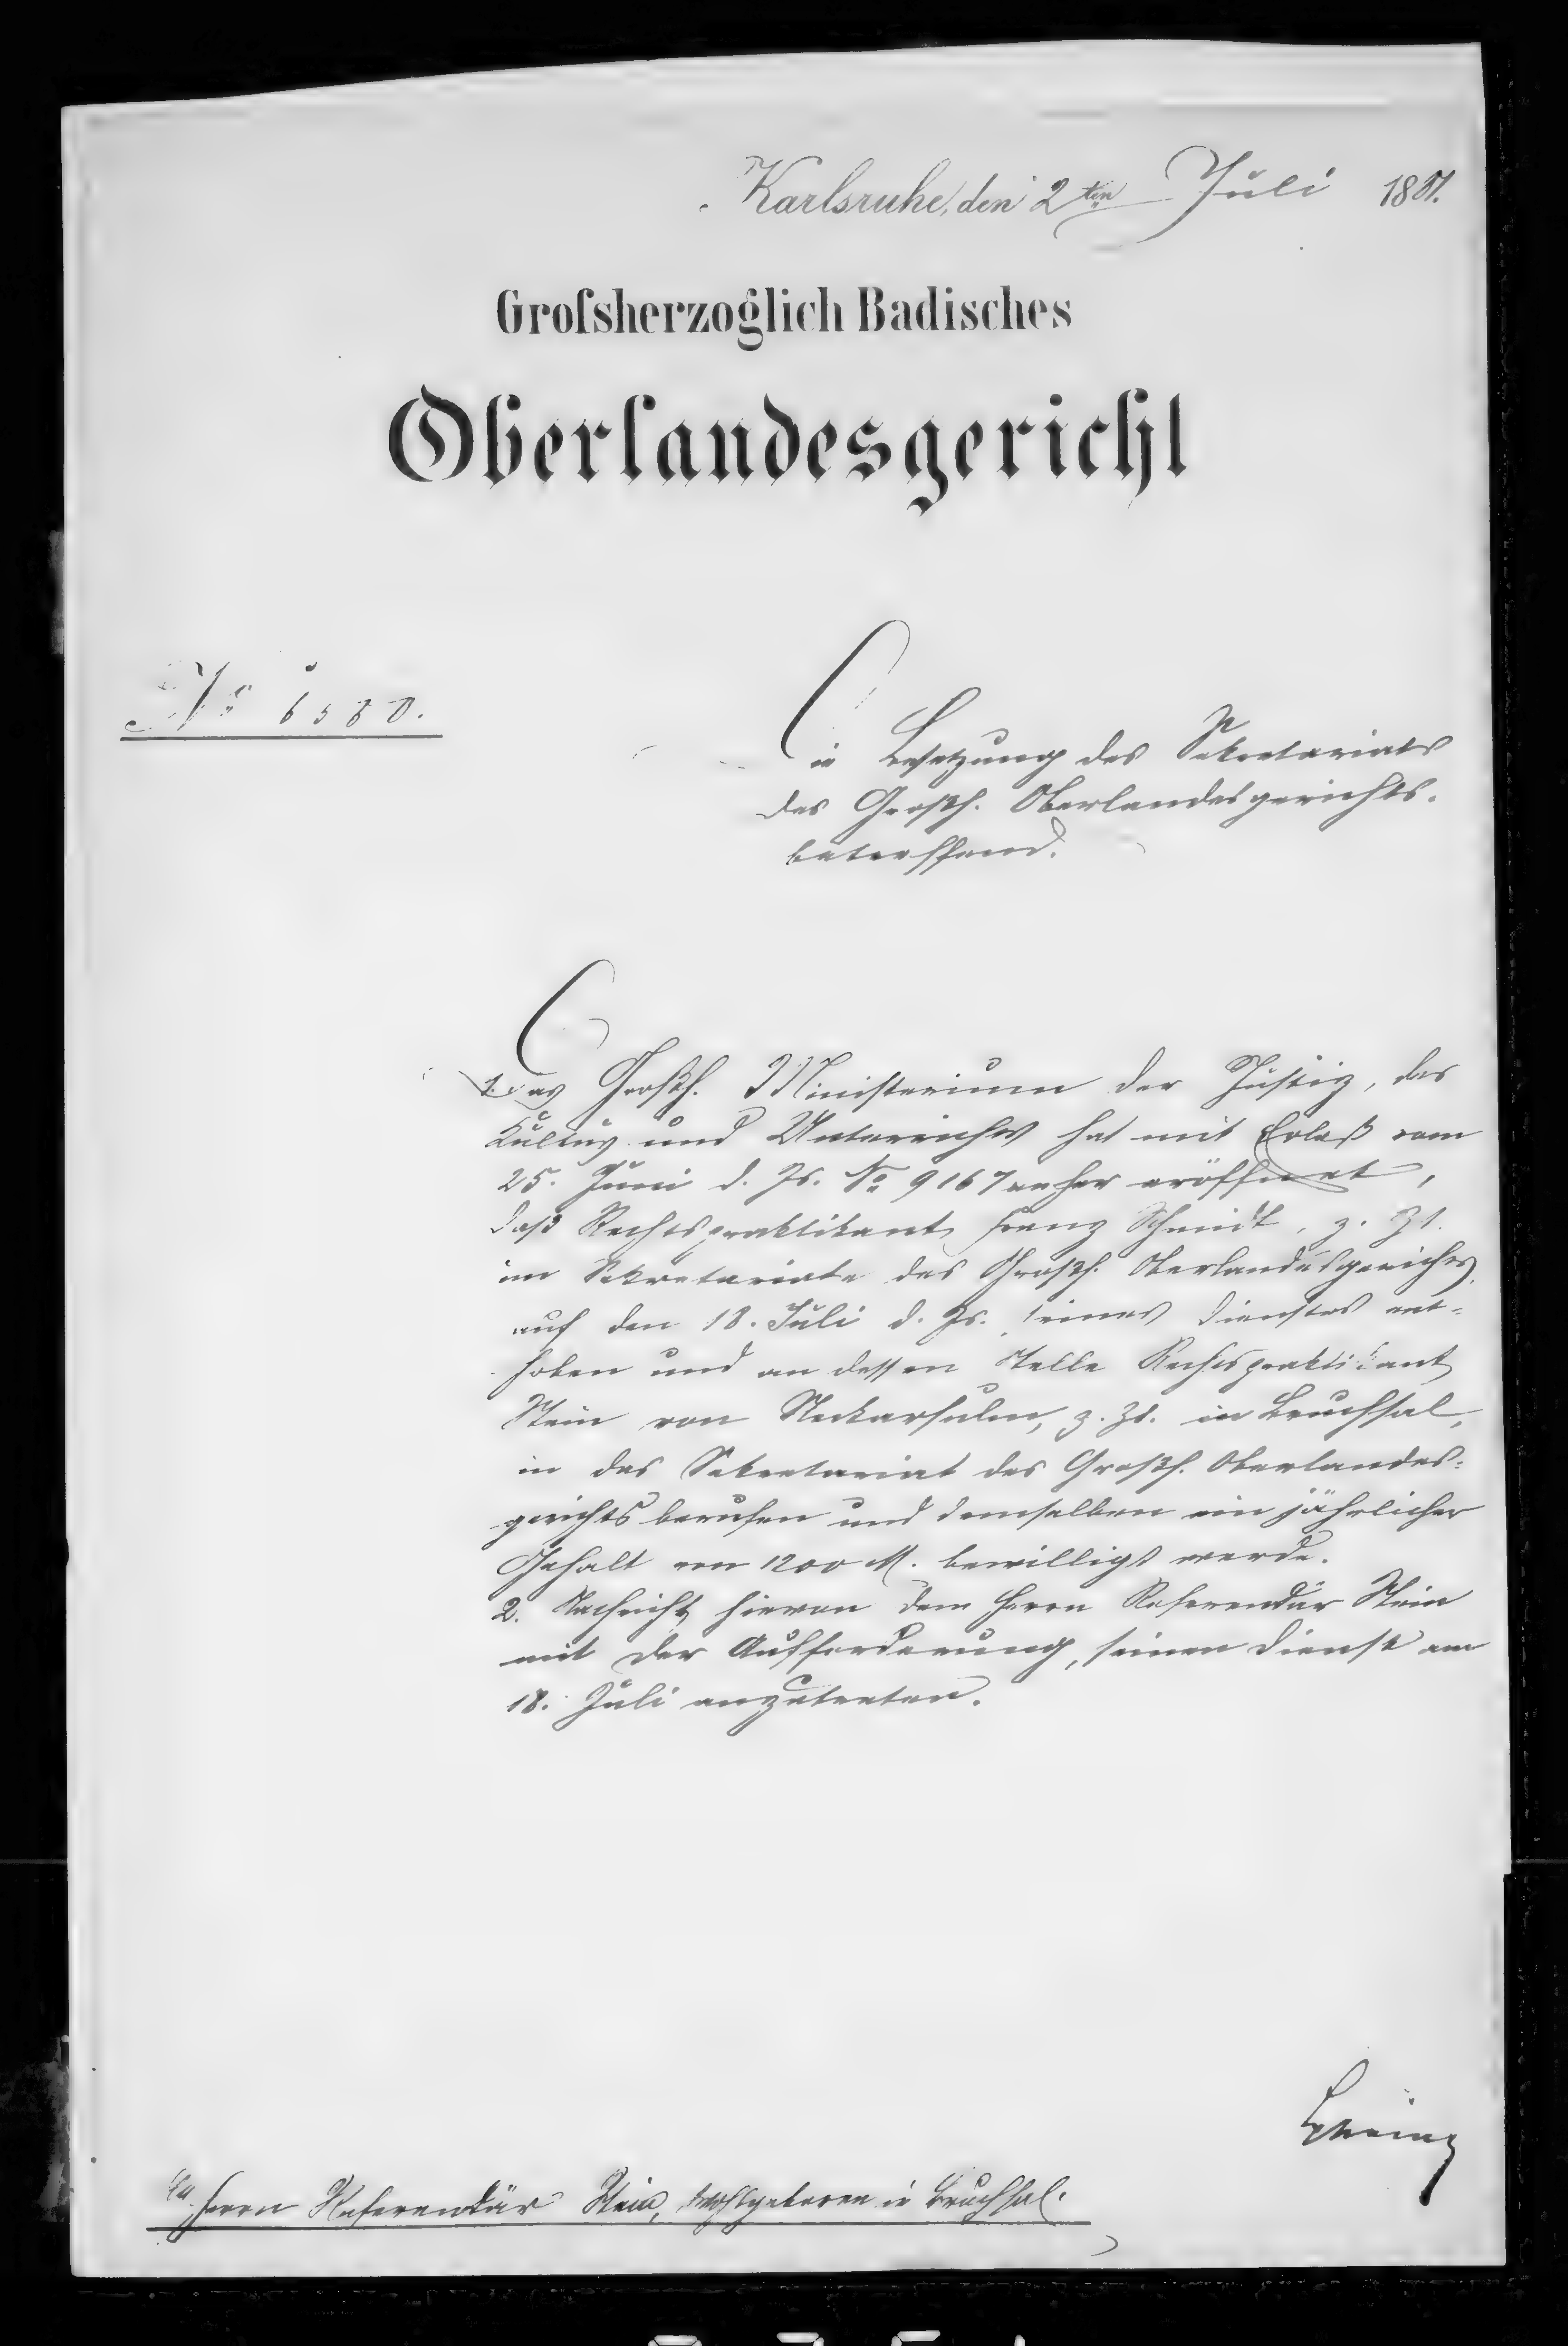 Karlsruhe, den 2ten Juli 1881.
Grofsherzoglich Badisches
Oberlandesgericht
No 6580.
Die Besetzung des Sekretariats
des Großh. Oberlandesgerichts.
betreffend.
1. Das Großh. Ministerium der Justiz, des
Kultus und Unterrichts hat mit Erlaß vom
25. Juni d. Js. No 9167 anher eröffnet,
daß Rechtspraktikant Franz Schmidt, z. Zt.
im Sekretariate des Großh. Oberlandesgerichts,
auf den 18. Juli d. Js. seines Dienstes ent-
hoben und an dessen Stelle Rechtspraktikant
Stein von Neckarsulm, z. Zt. in Bruchsal,
in das Sekretariat des Großh. Oberlandes-
gerichts berufen und demselben ein jährlicher
Gehalt von 1200 M. bewilligt werde.
2. Nachricht hievon dem Herrn Referendär Stein
mit der Aufforderung, seinen Dienst am
18. Juli anzutreten.
An Herrn Referendär Stein, Wohlgeboren in Bruchsal.